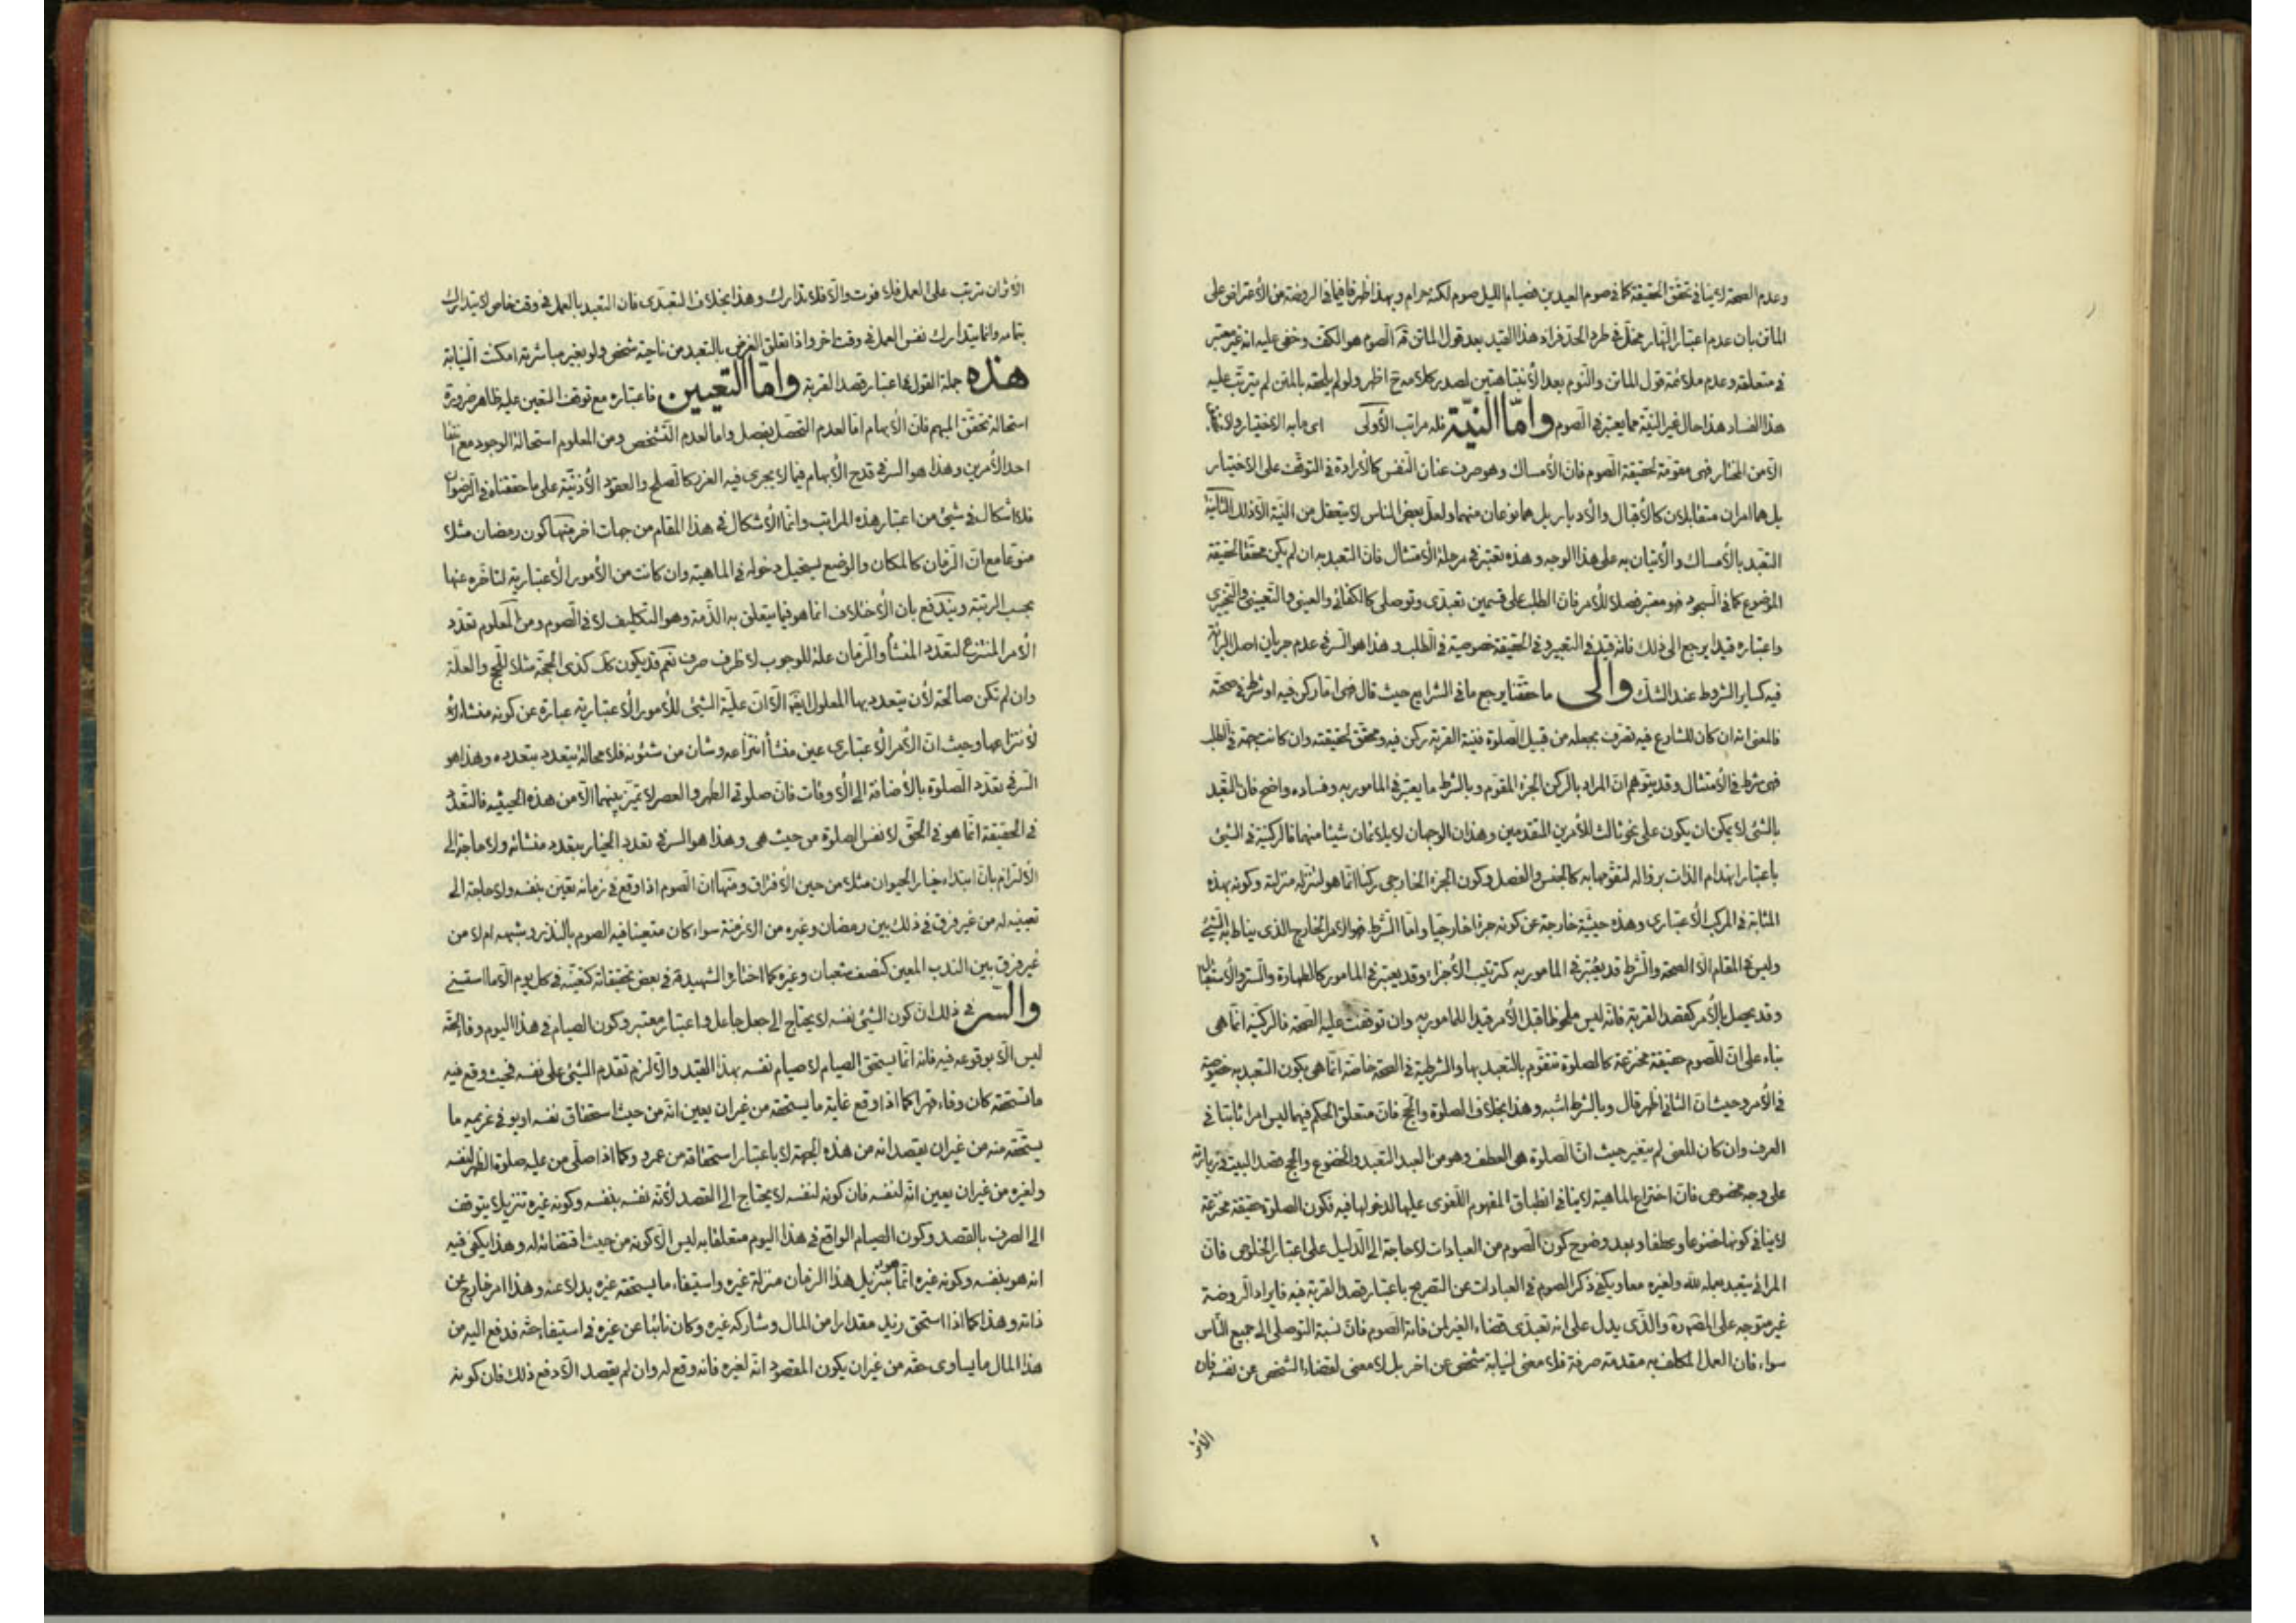 وعدم الصحة لا ينافي تحقق الحقيقة كما في صوم العيدين فصيام الليل صوم لكنه حرام وبهذا ظهر ما فيما في الروضة من الاعتراض على
الماتن بان عدم اعتبار النهار مخل في طرد الحد فزاد هذا القيد بعد قول الماتن قه الصوم هو الكف وخفى عليه انه غير معتبر
في متعلقه وعدم ملائمة قول الماتن والنوم بعد الانتباهتين لصدر كلامه ح اظهر ولو لم يلحقه بالمتن لم يترتب عليه
هذا الفساد هذا حال غير النية مما يعتبر في الصوم واما النية فله مراتب الأولى اى ما به الاختيار ولا
الا من المختار فهى مقومة لحقيقة الصوم فان الأمساك وهو صرف عنان النفس كالأرادة في التوقف على الاختيار
بل هما امران متقابلان كالأقبال والأدبار بل هما نوعان منهما ولعل بعض الناس لا يتعقل من النية الا ذلك الثانية
التعبد بالأمساك والأتيان به على هذا الوجه وهذه تعتبر في مرحلة الأمتثال فان التعبد به ان لم يكن محققا لحقيقة
الموضوع كما في السجود فهو معتبر فصلا للأمر فان الطلب على قسمين تعبدى وتوصلى كالكفائى والعينى والتعيينى والتخييرى
واعتباره قيدا يرجع الى ذلك فانه قيد في التعبير وفي الحقيقة خصوصية في الطلب وهذا هو السر في عدم جريان اصل البرائة
فيه كساير الشروط عند الشك والى ما حققنا يرجع ما في الشرايع حيث قال فهى اما ركن فيه او شرط في صحته
فالمعنى انه ان كان للشارع فيه تصرف بجعله من قبيل الصلوة فنية القربة ركن فيه ومحقق لحقيقته وان كانت جهة في الطلب
فهى شرط في الأمتثال وقد يتوهم ان المراد بالركن الجزء المقوم وبالشرط ما يعتبر في المامور به وفساده واضح فان التقيد
بالشئ لا يمكن ان يكون على نحو ثالث للأمرين المتقدمين وهذان الوجهان لا يلائمان شيئا منهما فالركنية في الشئ
باعتبار انهدام الذات بزواله لتقومها به كالجنس والفصل وكون الجزء الخارجى ركنا انما هو لتنزله منزلته وكونه بهذه
المثابة في المركب الأعتبارى وهذه حيثية خارجة عن كونه جزء خارجيا واما الشرط فهو الامر الخارج الذى يناط به الشئ
وليس في المقام الا الصحة والشرط قد يعتبر في المامور به كترتيب الأجزاء وقد يعتبر في المامور كالطهارة والستر والأستقبال
وقد يحصل بالأمر كقصد القربة فانه ليس ملحوظا قبل الأمر قيدا للمامور به وان توقفت عليه الصحة فالركنية انما هى
بناء على ان للصوم حقيقة مخترعة كالصلوة تتقوم بالتعبد بها والشرطية في الصحة خاصة انما هى بكون التعبد به خصوصية
في الأمر وحيث ان الثانى اظهر قال وبالشرط اشبه وهذا بخلاف الصلوة والحج فان متعلق الحكم فيهما ليس امرا ثابتا في
العرف وان كان المعنى لم يتغير حيث ان الصلوة هى العطف وهو من العبد التعبد والخضوع والحج قصد البيت في زيارته
على وجه مخصوص فان اختراع الماهية لا ينافي انطباق المفهوم اللغوى عليها لدخولها فيه فكون الصلوة حقيقة مخترعة
لا ينافي كونها خضوعا وعطفا وبعد وضوح كون الصوم من العبادات لا حاجة الى الدليل على اعتبار الخلوص فان
المرائى يتعبد بعمله لله ولغيره معا ويكفى ذكر الصوم في العبادات عن التصريح باعتبار قصد القربة فيه فايراد الروضة
غير متوجه على المقصود والذى يدل على انه تعبدى قضاء الغير لمن فاته الصوم فان نسبة التوصلى الى جميع الناس
سواء فان العمل المكلف به مقدمته صرفة فلا معنى لنيابة شخص عن اخر بل لا معنى لقضاء الشخص عن نفسه فان
الأثر
الأثر ان ترتب على العمل فلا فوت والا فلا تدارك وهذا بخلاف التعبدى فان التعبد بالعمل في وقت خاص لا يتدارك
بتمامه وانما يتدارك نفس العمل في وقت اخر واذا تعلق الغرض بالتعبد من ناحية شخص ولو بغير مباشرته امكنت النيابة
هذه جملة القول في اعتبار قصد القربة واما التعيين فاعتباره مع توقف المتعين عليه ظاهر ضرورة
استحالة تحقق المبهم فان الأبهام اما لعدم التحصل بفصل واما لعدم التشخص ومن المعلوم استحالة الوجود مع انتفاء
احد الأمرين وهذا هو السر في قدح الأبهام فيما لا يجرى فيه الغرر كالصلح والعقود الأذنية على ما حققناه في الرضوان
فلا اشكال في شئ من اعتبار هذه المراتب وانما الأشكال في هذا المقام من جهات اخر منها كون رمضان مثلا
منوعا مع ان الزمان كالمكان والوضع يستحيل دخوله في الماهية وان كانت من الأمور الأعتبارية لتاخره عنها
بحسب الرتبة ويندفع بان الأختلاف انما هو فيما يتعلق به الذمة وهو التكليف لا في الصوم ومن المعلوم تعدد
الأمر المنتزع لتعدد المنشأ والزمان علة للوجوب لا ظرف صرف نعم قد يكون كك كذى الحجة مثلا للحج والعلة
وان لم تكن صالحة لأن يتعدد بها المعلول ايضا الا ان علية الشئ للأمور الأعتبارية عبارة عن كونه منشاء
لأنتزاعها وحيث ان الأمر الأعتبارى عين منشأ انتزاعه وشان من شئونه فلا محالة يتعدد بتعدده وهذا هو
السر في تعدد الصلوة بالأضافة الى الأوقات فان صلوتى الظهر والعصر لا تميز بينهما الا من هذه الحيثية فالتعدد
في الحقيقة انما هو في الحق لا نفس الصلوة من حيث هى وهذا هو السر في تعدد الخيار بتعدد منشائه ولا حاجة الى
الألتزام بان ابتداء خيار الحيوان مثلا من حين الأفتراق ومنها ان الصوم اذا وقع في زمانه تعين بنفسه ولا حاجة الى
تعيينه له من غير فرق في ذلك بين رمضان وغيره من الازمنة سواء كان متعينا فيه الصوم بالنذر وشبهه ام لا من
غير فرق بين الندب المعين كنصف شعبان وغيره كما اختار الشهيد قه في بعض تحقيقاته كتعينه في كل يوم الا ما استثنى
والسر في ذلك ان كون الشئ نفسه لا يحتاج الى جعل جاعل واعتبار معتبر وكون الصيام في هذا اليوم وفاء لحقه
ليس الا بوقوعه فيه فانه انما يستحق الصيام لا صيام نفسه بهذا القيد والا لزم تقدم الشئ على نفسه فحيث وقع فيه
ما يستحقه كان وفاء قهرا كما اذا وقع غاية ما يستحقه من غير ان يعين انه من حيث استحقاق نفسه او يوفى غريمه ما
يستحقه منه من غير ان يقصد انه من هذه الجهة لا باعتبار استحقاقه من عمرو وكما اذا صلى من عليه صلوة الظهر لنفسه
ولغيره من غير ان يعين انه لنفسه فان كونه لنفسه لا يحتاج الى القصد لأنه نفسه بنفسه وكونه غيره تنزيلا يتوقف
الى الصرف بالقصد وكون الصيام الواقع في هذا اليوم متعلقا به ليس الا كونه من حيث اقتضائه له وهذا يكفى فيه
انه هو بنفسه وكونه غيره انما هو بتنزيل هذا الزمان منزلة غيره واستيفاء ما يستحقه غيره بدلا عنه وهذا امر خارج عن
ذاته وهذا كما اذا استحق زيد مقدارا من المال وشاركه غيره وكان نائبا عن غيره في استيفاء حقه فدفع اليه من
هذا المال ما يساوى حقه من غير ان يكون المقصود انه لغيره فانه وقع له وان لم يقصد الا دفع ذلك فان كونه